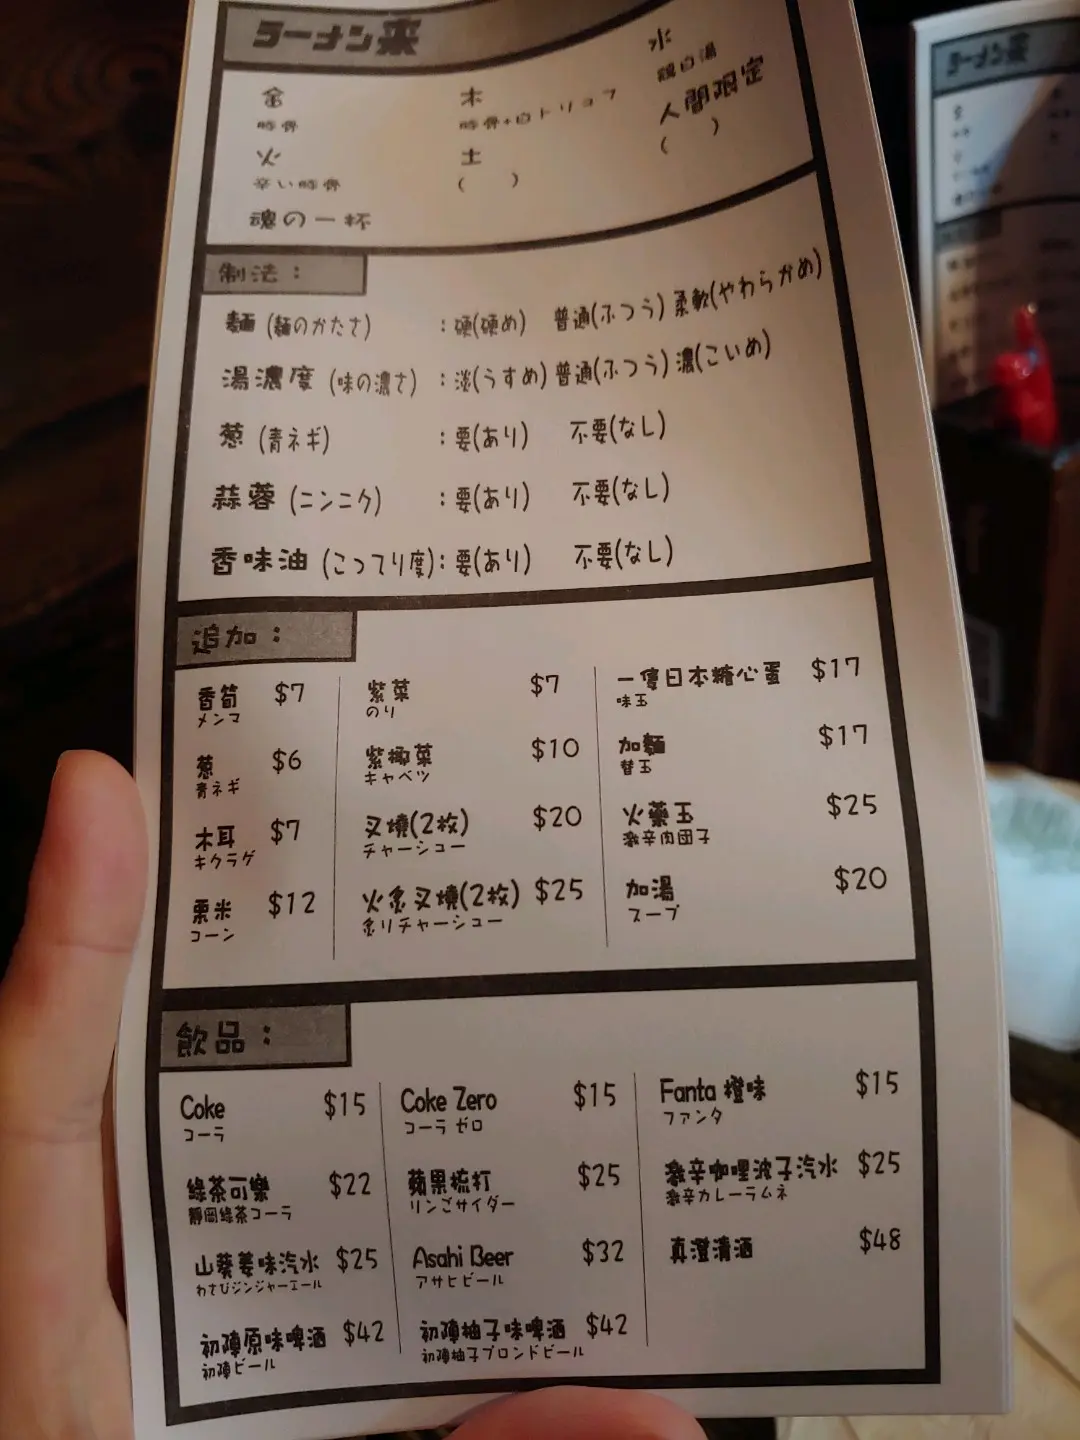 ラーメン来
金 木 水
豚骨 豚骨+白トリュフ 鶏白湯
火 土 人間限定
辛い豚骨 ( ) ( )
魂の一杯
制法：
麺 (麺のかたさ) ：硬(硬め) 普通(ふつう) 柔軟(やわらかめ)
湯濃度 (味の濃さ) ：淡(うすめ) 普通(ふつう) 濃(こいめ)
葱 (青ネギ) ：要(あり) 不要(なし)
蒜蓉 (ニンニク) ：要(あり) 不要(なし)
香味油 (こってり度)：要(あり) 不要(なし)
追加：
香筍 $7 紫菜 $7 一隻日本糖心蛋 $17
メンマ のり 味玉
葱 $6 紫椰菜 $10 加麵 $17
青ネギ キャベツ 替玉
木耳 $7 叉燒(2枚) $20 火藥玉 $25
キクラゲ チャーシュー 激辛肉団子
粟米 $12 火炙叉燒(2枚) $25 加湯 $20
コーン 炙りチャーシュー スープ
飲品：
Coke $15 Coke Zero $15 Fanta 橙味 $15
コーラ コーラ ゼロ ファンタ
綠茶可樂 $22 蘋果梳打 $25 激辛咖喱波子汽水 $25
静岡緑茶コーラ リンごサイダー 激辛カレーラムネ
山葵姜味汽水 $25 Asahi Beer $32 真澄清酒 $48
わさびジンジャーエール アサヒビール
初陣原味啤酒 $42 初陣柚子味啤酒 $42
初陣ビール 初陣柚子ブロンドビール